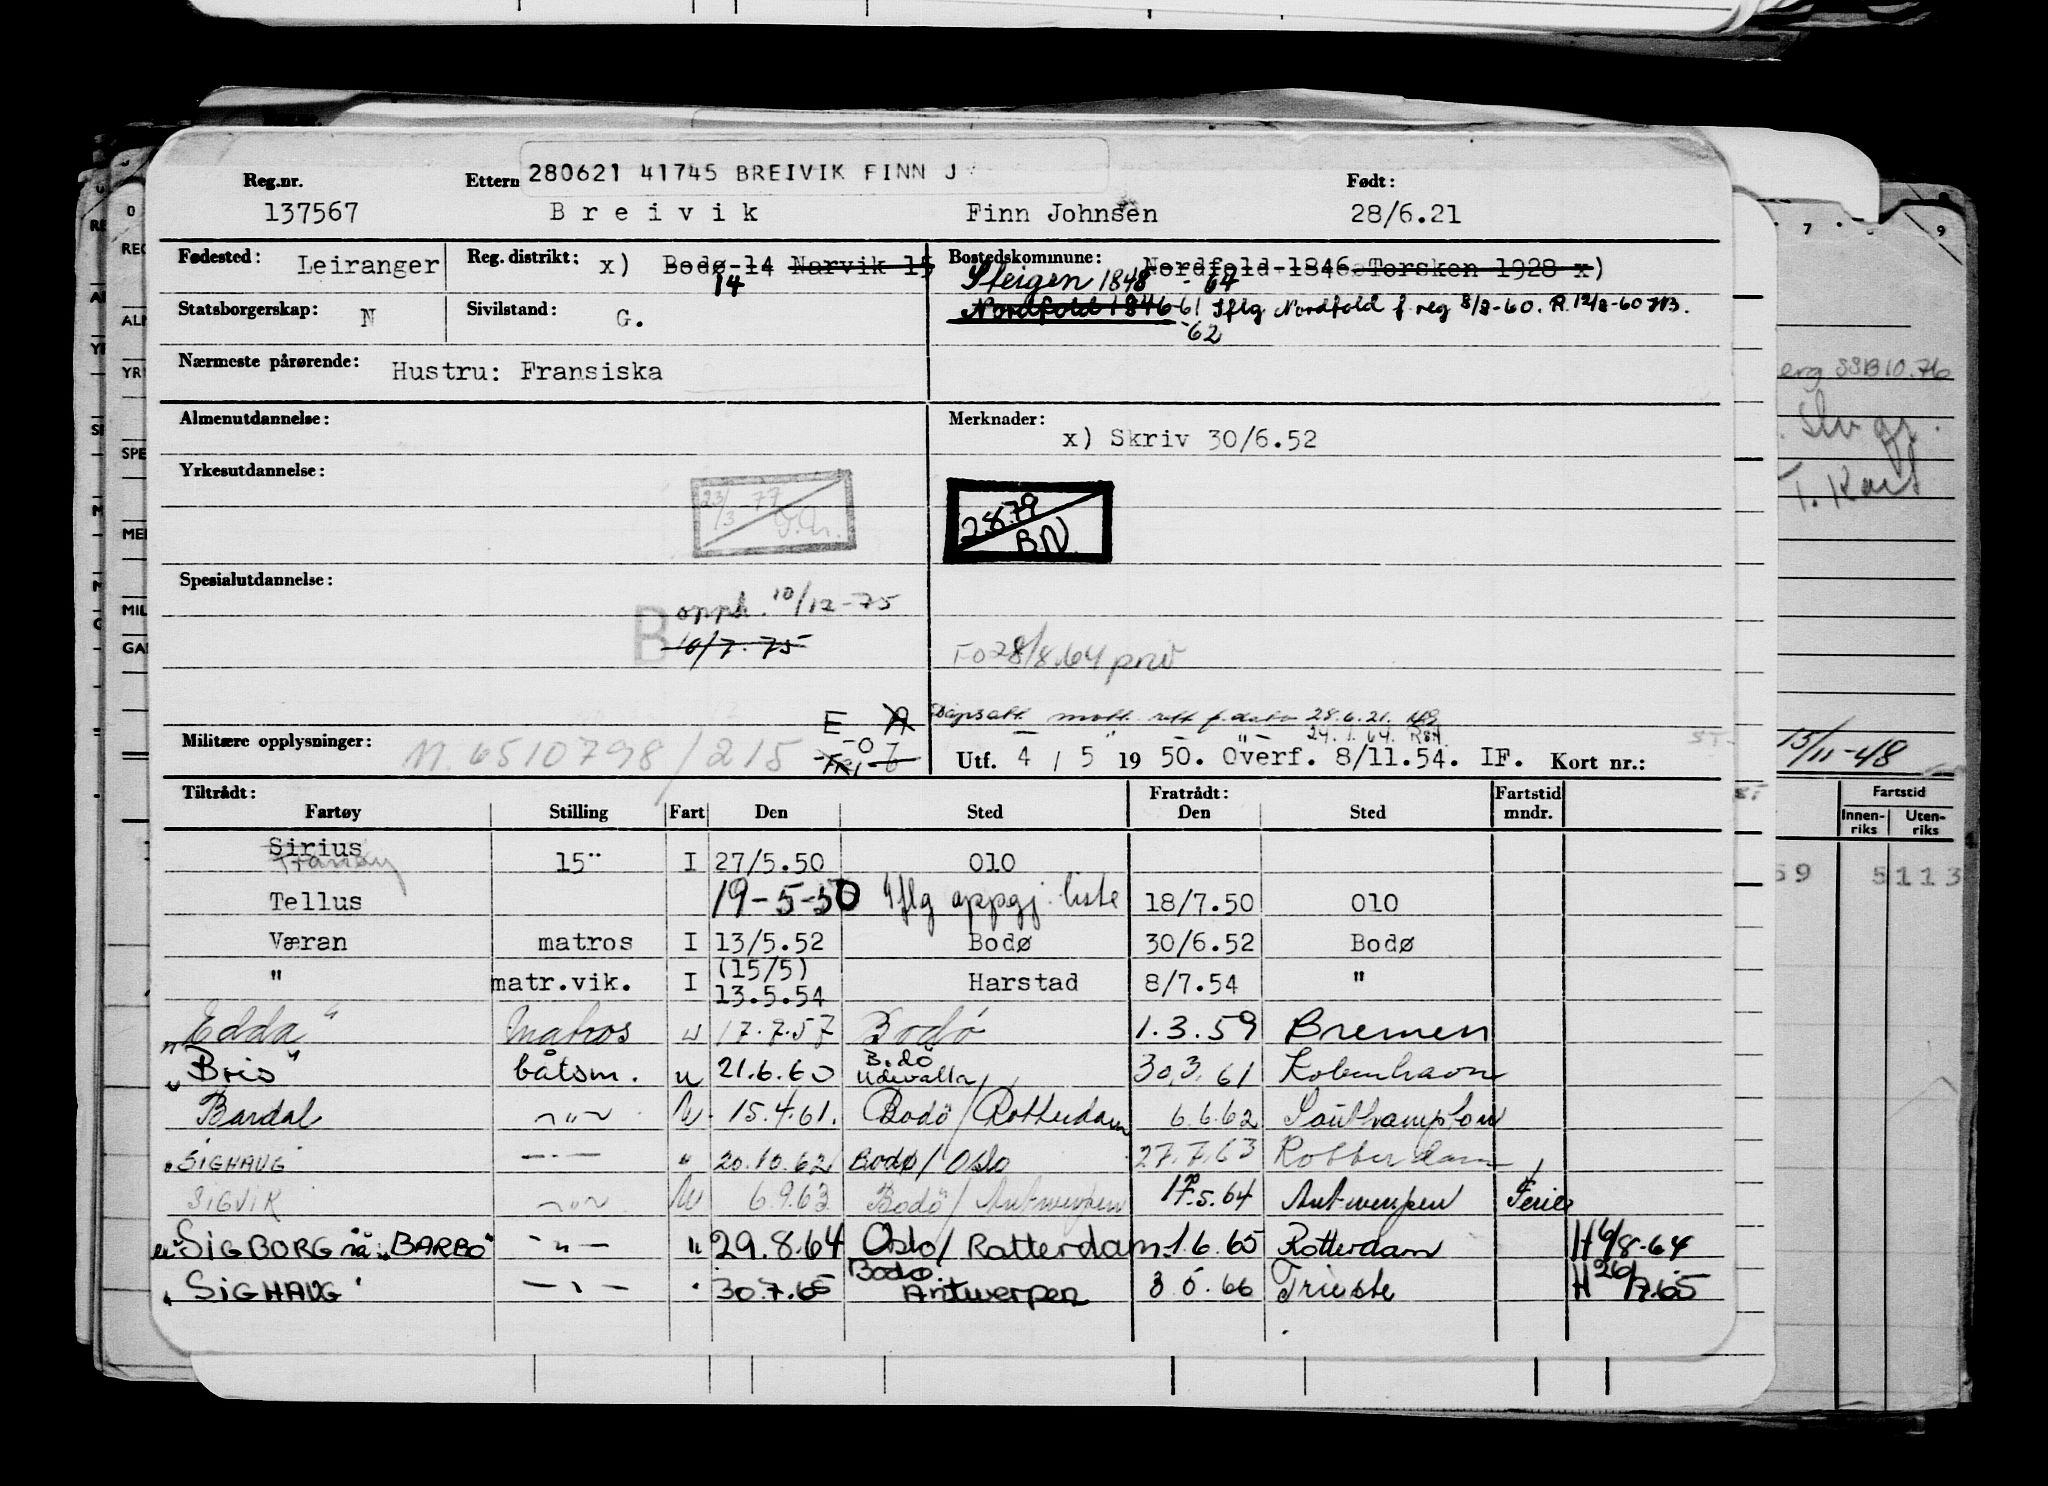 280621 41745 BREIVIK FINN J
Reg.nr. Ettern Født:
137567 Breivik Finn Johnsen 28/6.21
Fødested: Leiranger Reg. distrikt: x) Bodø-14 Narvik 15 Bostedskommune: Nordfold-1846 Torsken 1928 x)
14 Steigen 1848 - 64
Statsborgerskap: N Sivilstand: G. Nordfold 1846-61 Iflg Nordfold f.reg 8/8-60. R. 12/8-60
-62
Nærmeste pårørende: Hustru: Fransiska
Almenutdannelse: Merknader:
x) Skriv 30/6.52
Yrkesutdannelse:
23/3-77
2.8.79
BN
Spesialutdannelse:
B opph. 10/12-75
10/7.75
FO 28/8.64
E A
28.6.21.
24.1.64.
Militære opplysninger: M.6510798/215 Utf. 4 / 5 19 50. Overf. 8/11.54. IF. Kort nr.:
Tiltrådt: Fratrådt: Fartstid
Fartøy Stilling Fart Den Sted Den Sted mndr.
Sirius 15" I 27/5.50 Olo
Tranøy
Tellus 19-5-50 Iflg oppgj. liste 18/7.50 Olo
Væran matros I 13/5.52 Bodø 30/6.52 Bodø
" matr.vik. I (15/5) 13.5.54 Harstad 8/7.54 "
"Edda" Matros u 17.7.57 Bodö 1.3.59 Bremen
"Bris" båtsm. u 21.6.60 Bodö Udevalla 30.3.61 København
Bardal -"- U. 15.4.61. Bodö/Rotterdam 6.6.62 Southampton
"SIGHAUG -"- " 20.10.62 Bodø/Oslo 27.7.63 Rotterdam
SIGVIK -"- U 6.9.63 Bodö/Antwerpen .5.64 Antwerpen Ferie
"SIGBORG nå "BARBO" -"- " 29.8.64 Oslo/Rotterdam 1.6.65 Rotterdam H 6/8-64
"SIGHAUG" -"- " 30.7.65 Bodø Antwerpen 3.5.66 Trieste H 26/7.65
erg SSB 10.76
T. Kort
13/11-48
Fartstid
Innen-riks Uten-riks
59 5 113
7 9